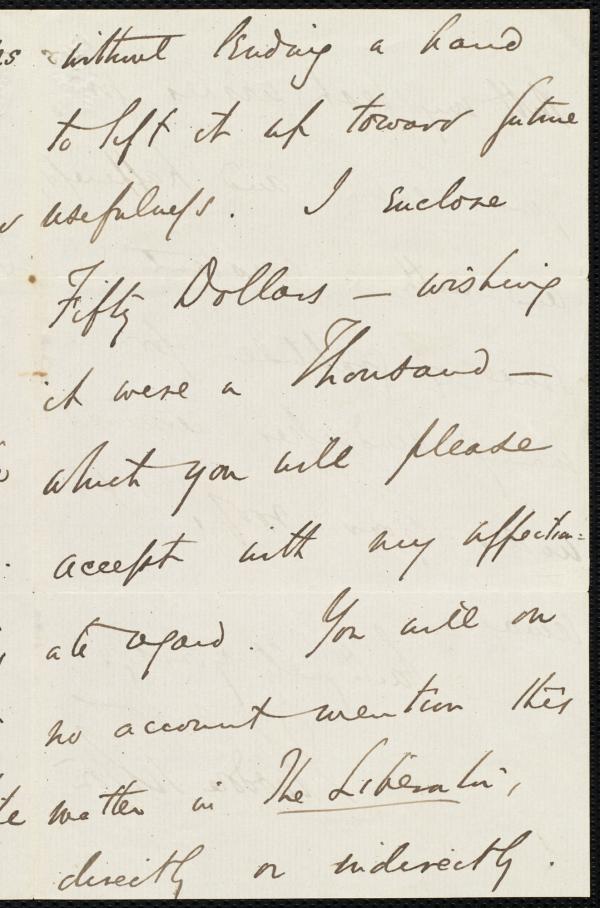 without lending a hand
to lift it up toward future
usefulness. I enclose
Fifty Dollars — wishing
it were a Thousand —
which you will please
accept with my affection=
ate regard. You will on
no account mention this
matter in The Liberator,
directly or indirectly.